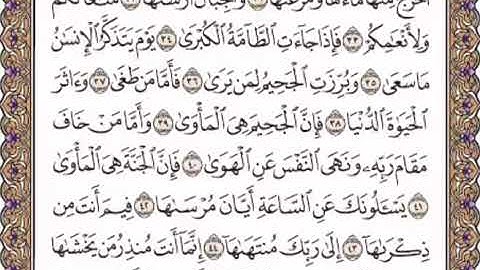 أَخْرَجَ مِنْهَا مَآءَهَا وَمَرْعَىٰهَا ٣١ وَٱلْجِبَالَ أَرْسَىٰهَا ٣٢ مَتَٰعًا لَّكُمْ
وَلِأَنْعَٰمِكُمْ ٣٣ فَإِذَا جَآءَتِ ٱلطَّآمَّةُ ٱلْكُبْرَىٰ ٣٤ يَوْمَ يَتَذَكَّرُ ٱلْإِنسَٰنُ
مَا سَعَىٰ ٣٥ وَبُرِّزَتِ ٱلْجَحِيمُ لِمَن يَرَىٰ ٣٦ فَأَمَّا مَن طَغَىٰ ٣٧ وَءَاثَرَ
ٱلْحَيَوٰةَ ٱلدُّنْيَا ٣٨ فَإِنَّ ٱلْجَحِيمَ هِىَ ٱلْمَأْوَىٰ ٣٩ وَأَمَّا مَنْ خَافَ
مَقَامَ رَبِّهِۦ وَنَهَى ٱلنَّفْسَ عَنِ ٱلْهَوَىٰ ٤٠ فَإِنَّ ٱلْجَنَّةَ هِىَ ٱلْمَأْوَىٰ
٤١ يَسْـَٔلُونَكَ عَنِ ٱلسَّاعَةِ أَيَّانَ مُرْسَىٰهَا ٤٢ فِيمَ أَنتَ مِن
ذِكْرَىٰهَآ ٤٣ إِلَىٰ رَبِّكَ مُنتَهَىٰهَآ ٤٤ إِنَّمَآ أَنتَ مُنذِرُ مَن يَخْشَىٰهَا